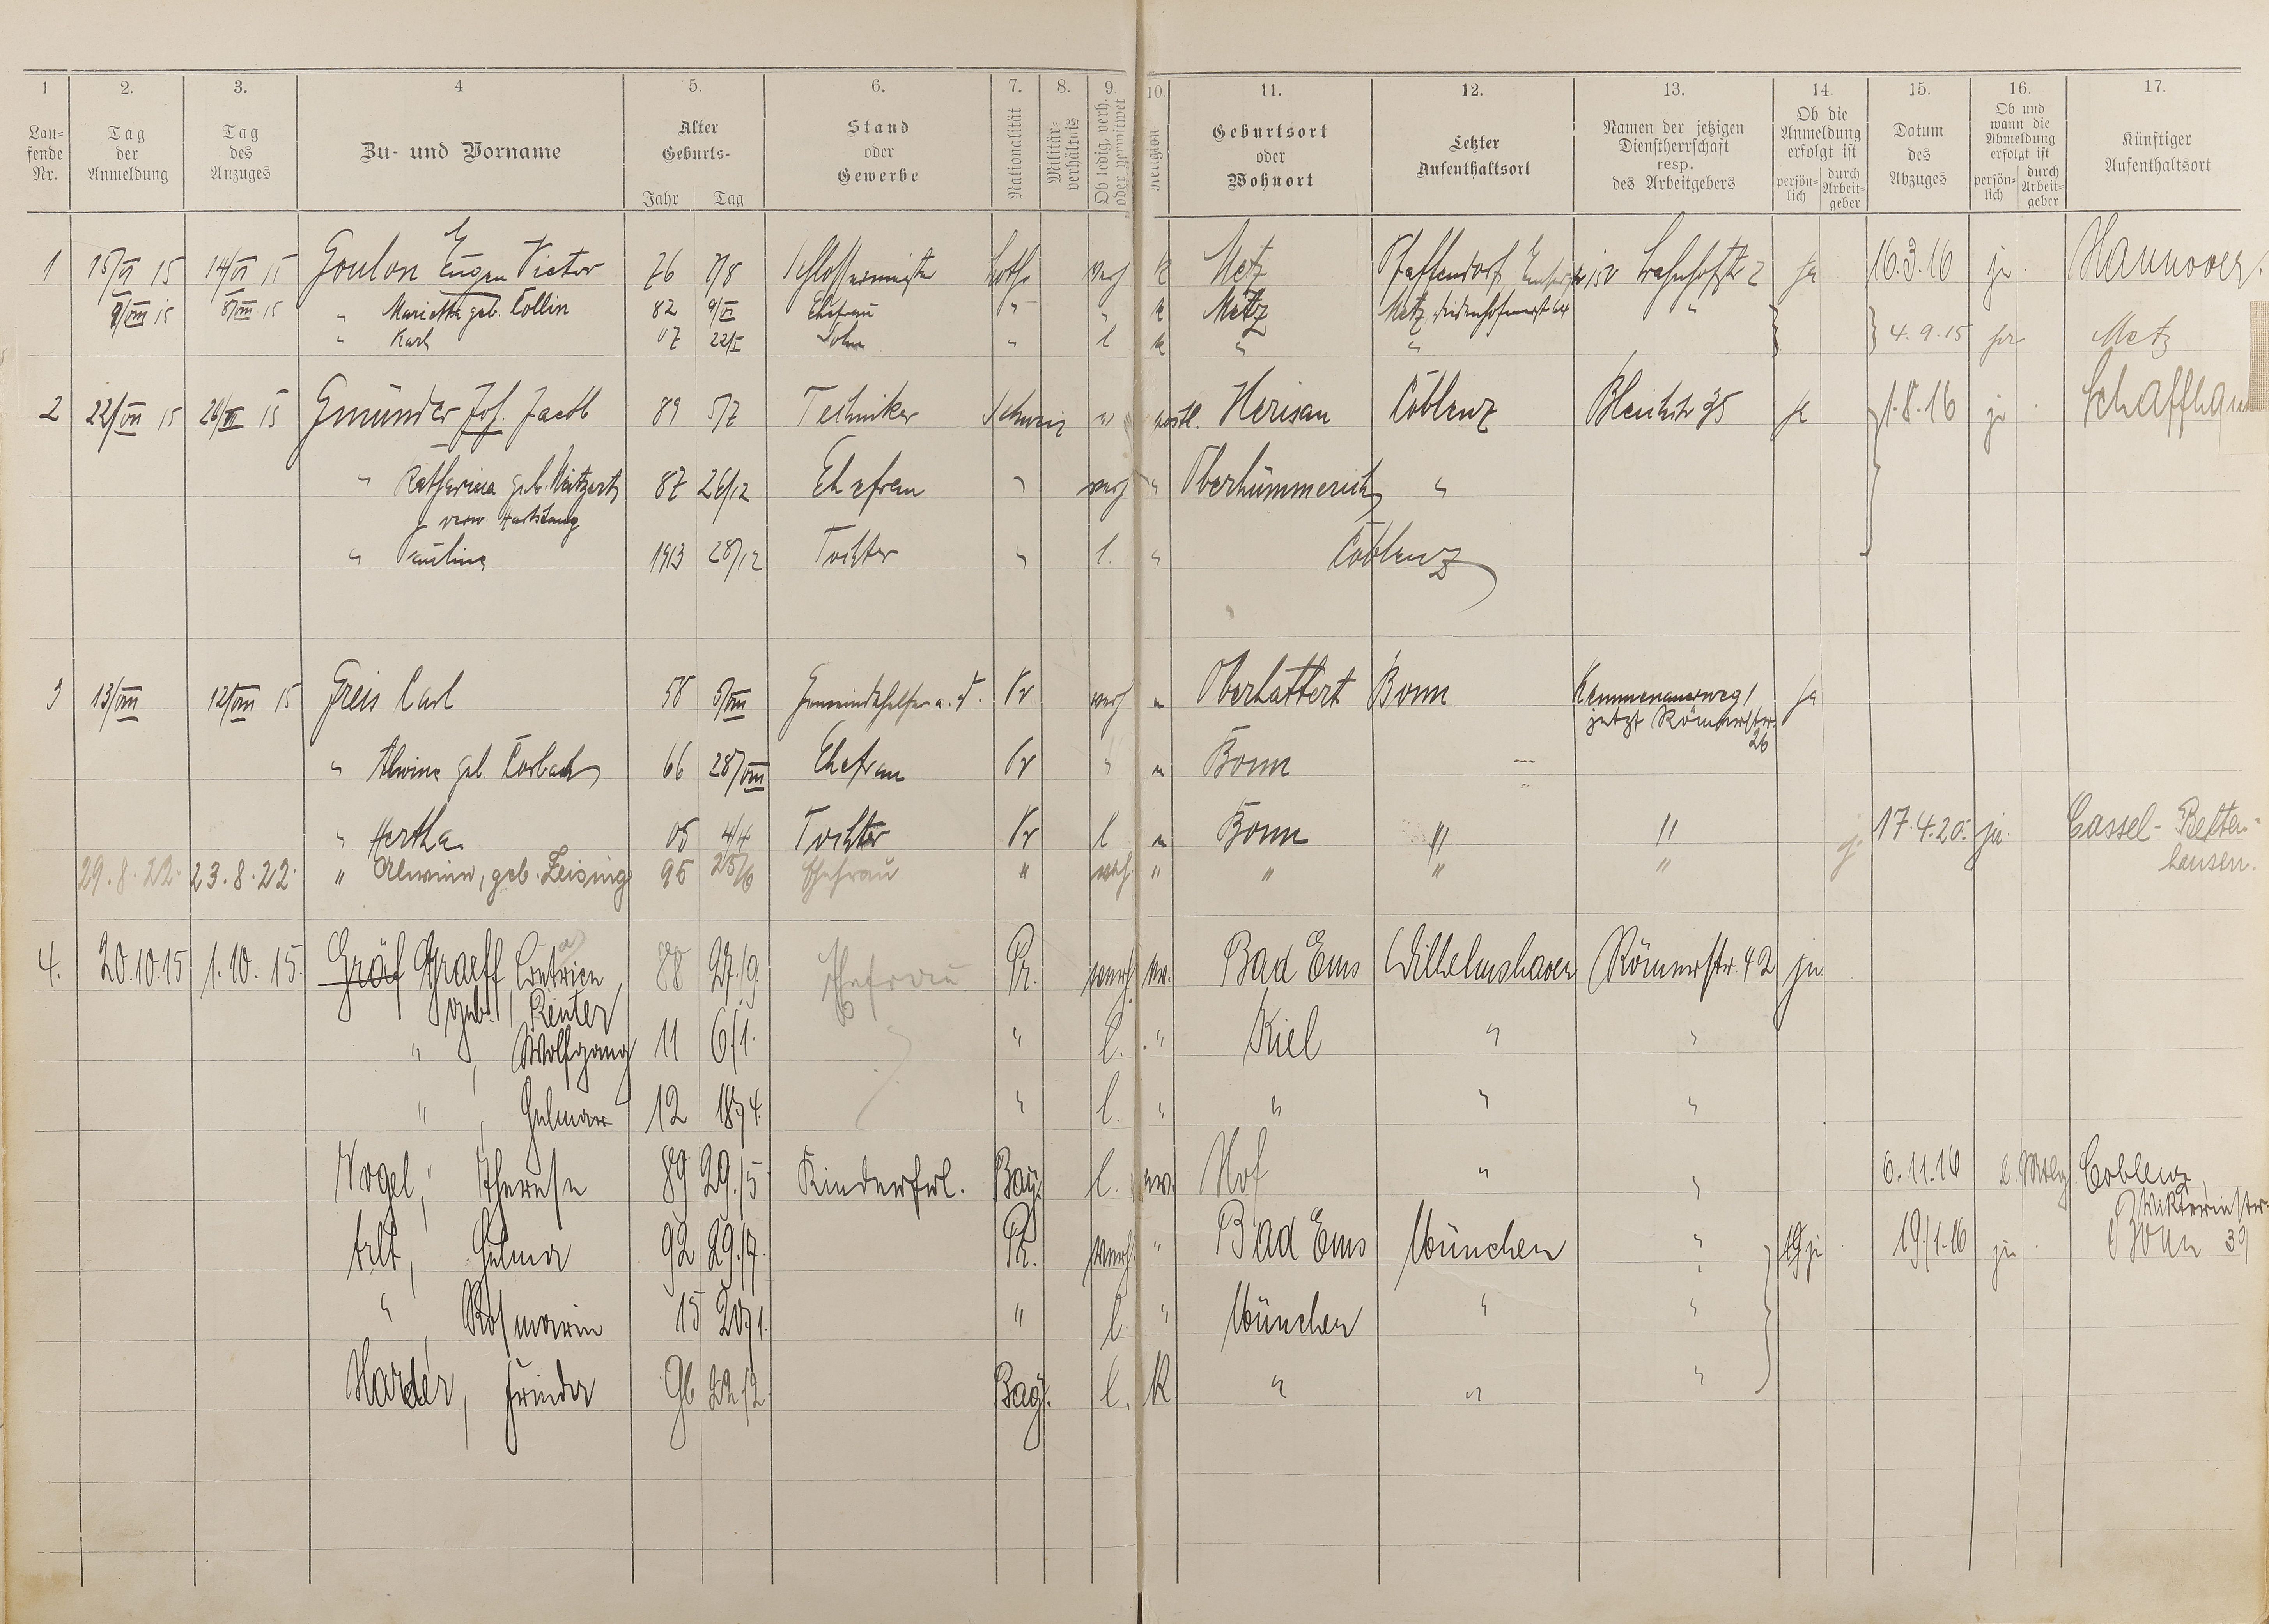 1 2. 3. 4 5. 6. 7. 8. 9. 10. 11. 12. 13. 14 15. 16. 17.
Lau=fende Nr. Tag der Anmeldung Tag des Anzuges Zu- und Vorname Alter Geburts- Jahr Tag Stand oder Gewerbe Nationalität Militär-verhältnis Ob ledig, verh. oder verwitwet Religion Geburtsort oder Wohnort Letzter Aufenthaltsort Namen der jetzigen Dienstherrschaft resp. des Arbeitgebers Ob die Anmeldung erfolgt ist persön=lich durch Arbeit=geber Datum des Abzuges Ob und wann die Abmeldung erfolgt ist persön=lich durch Arbeit=geber Künftiger Aufenthaltsort
1 15/VI 15 14/VI 15 Goulon Eugen Victor 76 7/8 Schlossermeister Lothr verh k Metz Pfaffendorf Bahnhofstr 2 ja 16.3.16 ja. Hannover.
9/VIII 15 8/VIII 15 " Marietta geb. Collin 82 9/VI Ehefrau " " k Metz Metz "
" Karl 07 22/I Sohn " l k " " 4.9.15 ja Metz
2 22/VII 15 Gmünder Jos. Jacob 89 5/7 Techniker Schweiz Herisau Coblenz Bleichstr 35 ja 1.8.16 ja. Schaffhau
" Katharina geb. 87 26/12 Ehefrau " verh " Oberhümmerich "
verw.
" Paulina 1913 28/12 Tochter " l. " Coblenz
3 13/VIII 12/VIII 15 Greis Carl 58 5/VIII Pr verh Oberhattert Bonn Kemmenauerweg 1 ja
jetzt Römerstr. 26
" Alwine geb. Corbach 66 28/VIII Ehefrau Pr " Bonn
" Hertha 05 4/4 Tochter Pr l Bonn " " 17.4.20. ja. Cassel-Retten=
29.8.22. 23.8.22. " Alwine, geb. Zeising 95 25/6 Ehefrau " verh. " " " " hausen.
4. 20.10.15 1.10.15. Gräf Graeff 88 27./9. Ehefrau Pr. verh. ev. Bad Ems Wilhelmshaven Römerstr. 42 ja.
geb. Reuter
" , Wolfgang 11 6/1. " l. " Kiel " "
" , 12 18/4. " l. " " " "
Vogel, Therese 89 29./5 Kinderfrl. Bay. l. ev. Hof " " 6.11.16 Coblenz,
Viktoriastr.
Helma 92 29./7. Pr. verh. " Bad Ems München " ja. 19/1.16 ja. Bonn 39
" , Rosmarie 15 20/1. " l. " München " "
Harder, Frieda 96 22./2. Bay. l. K " " "